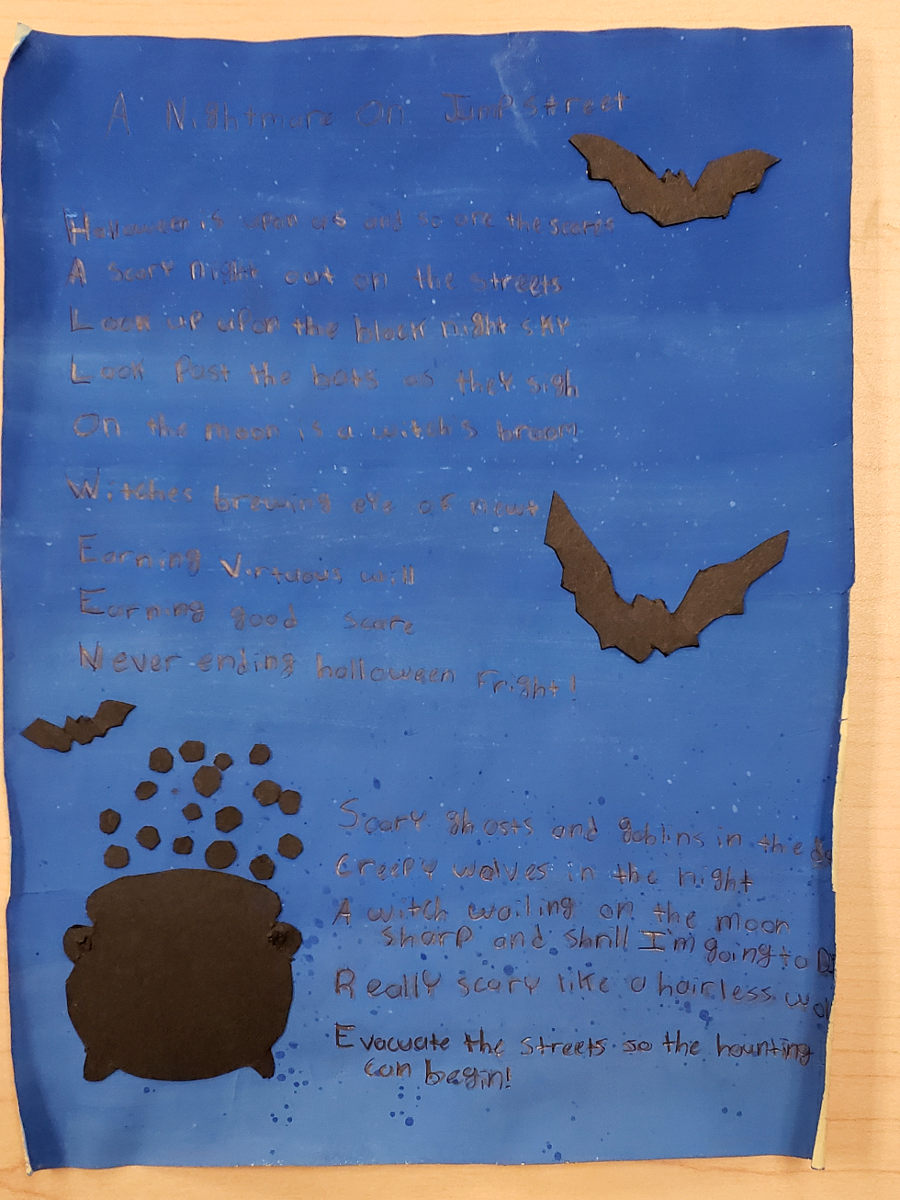 A Nightmare On Jump street
Halloween is upon us and so are the scares
A scary night out on the streets
Look up upon the black night sky
Look Past the bats as they sigh
On the moon is a witch's broom
Witches brewing eye of newt
Earning virtuous will
Earning good scare
Never ending halloween Fright!
Scary ghosts and goblins in the
Creepy wolves in the night
A witch wailing on the moon
sharp and shrill I'm going to
Really scary like a hairless
Evacuate the streets so the haunting
can begin!